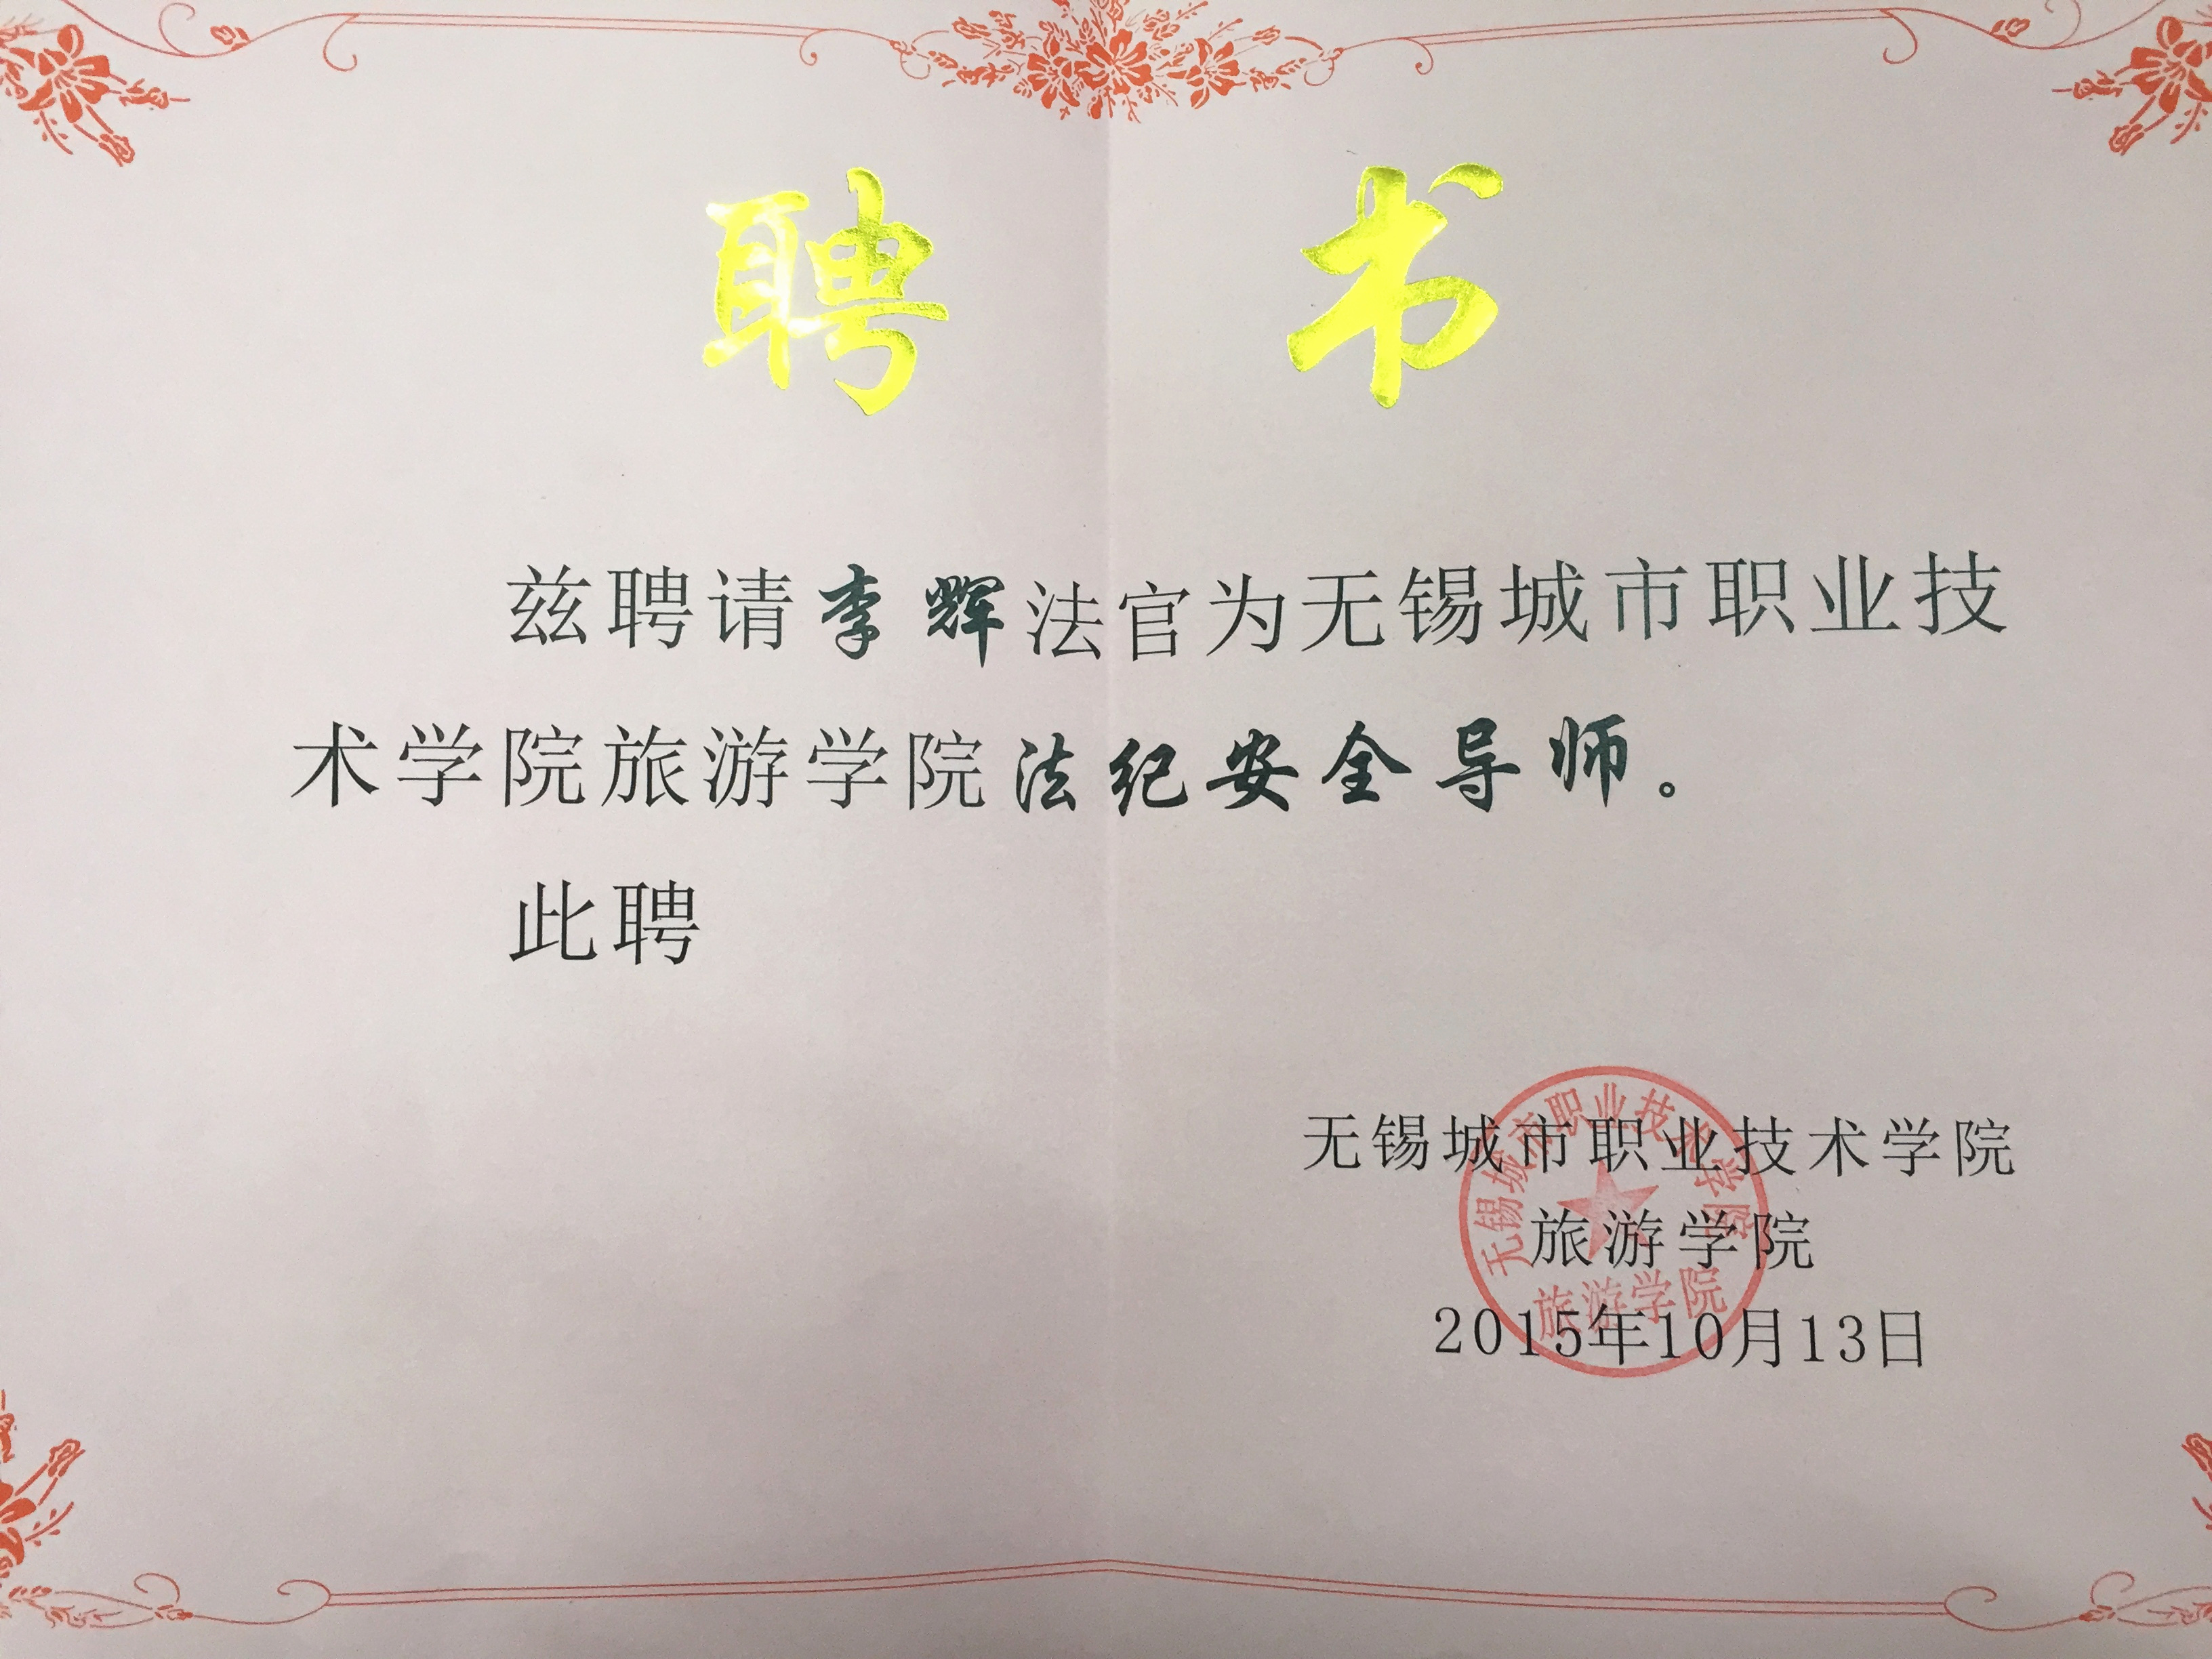 聘书
兹聘请李辉法官为无锡城市职业技
术学院旅游学院法纪安全导师。
此聘
无锡城市职业技术学院
旅游学院
2015年10月13日
无锡城市职业技术学院
旅游学院